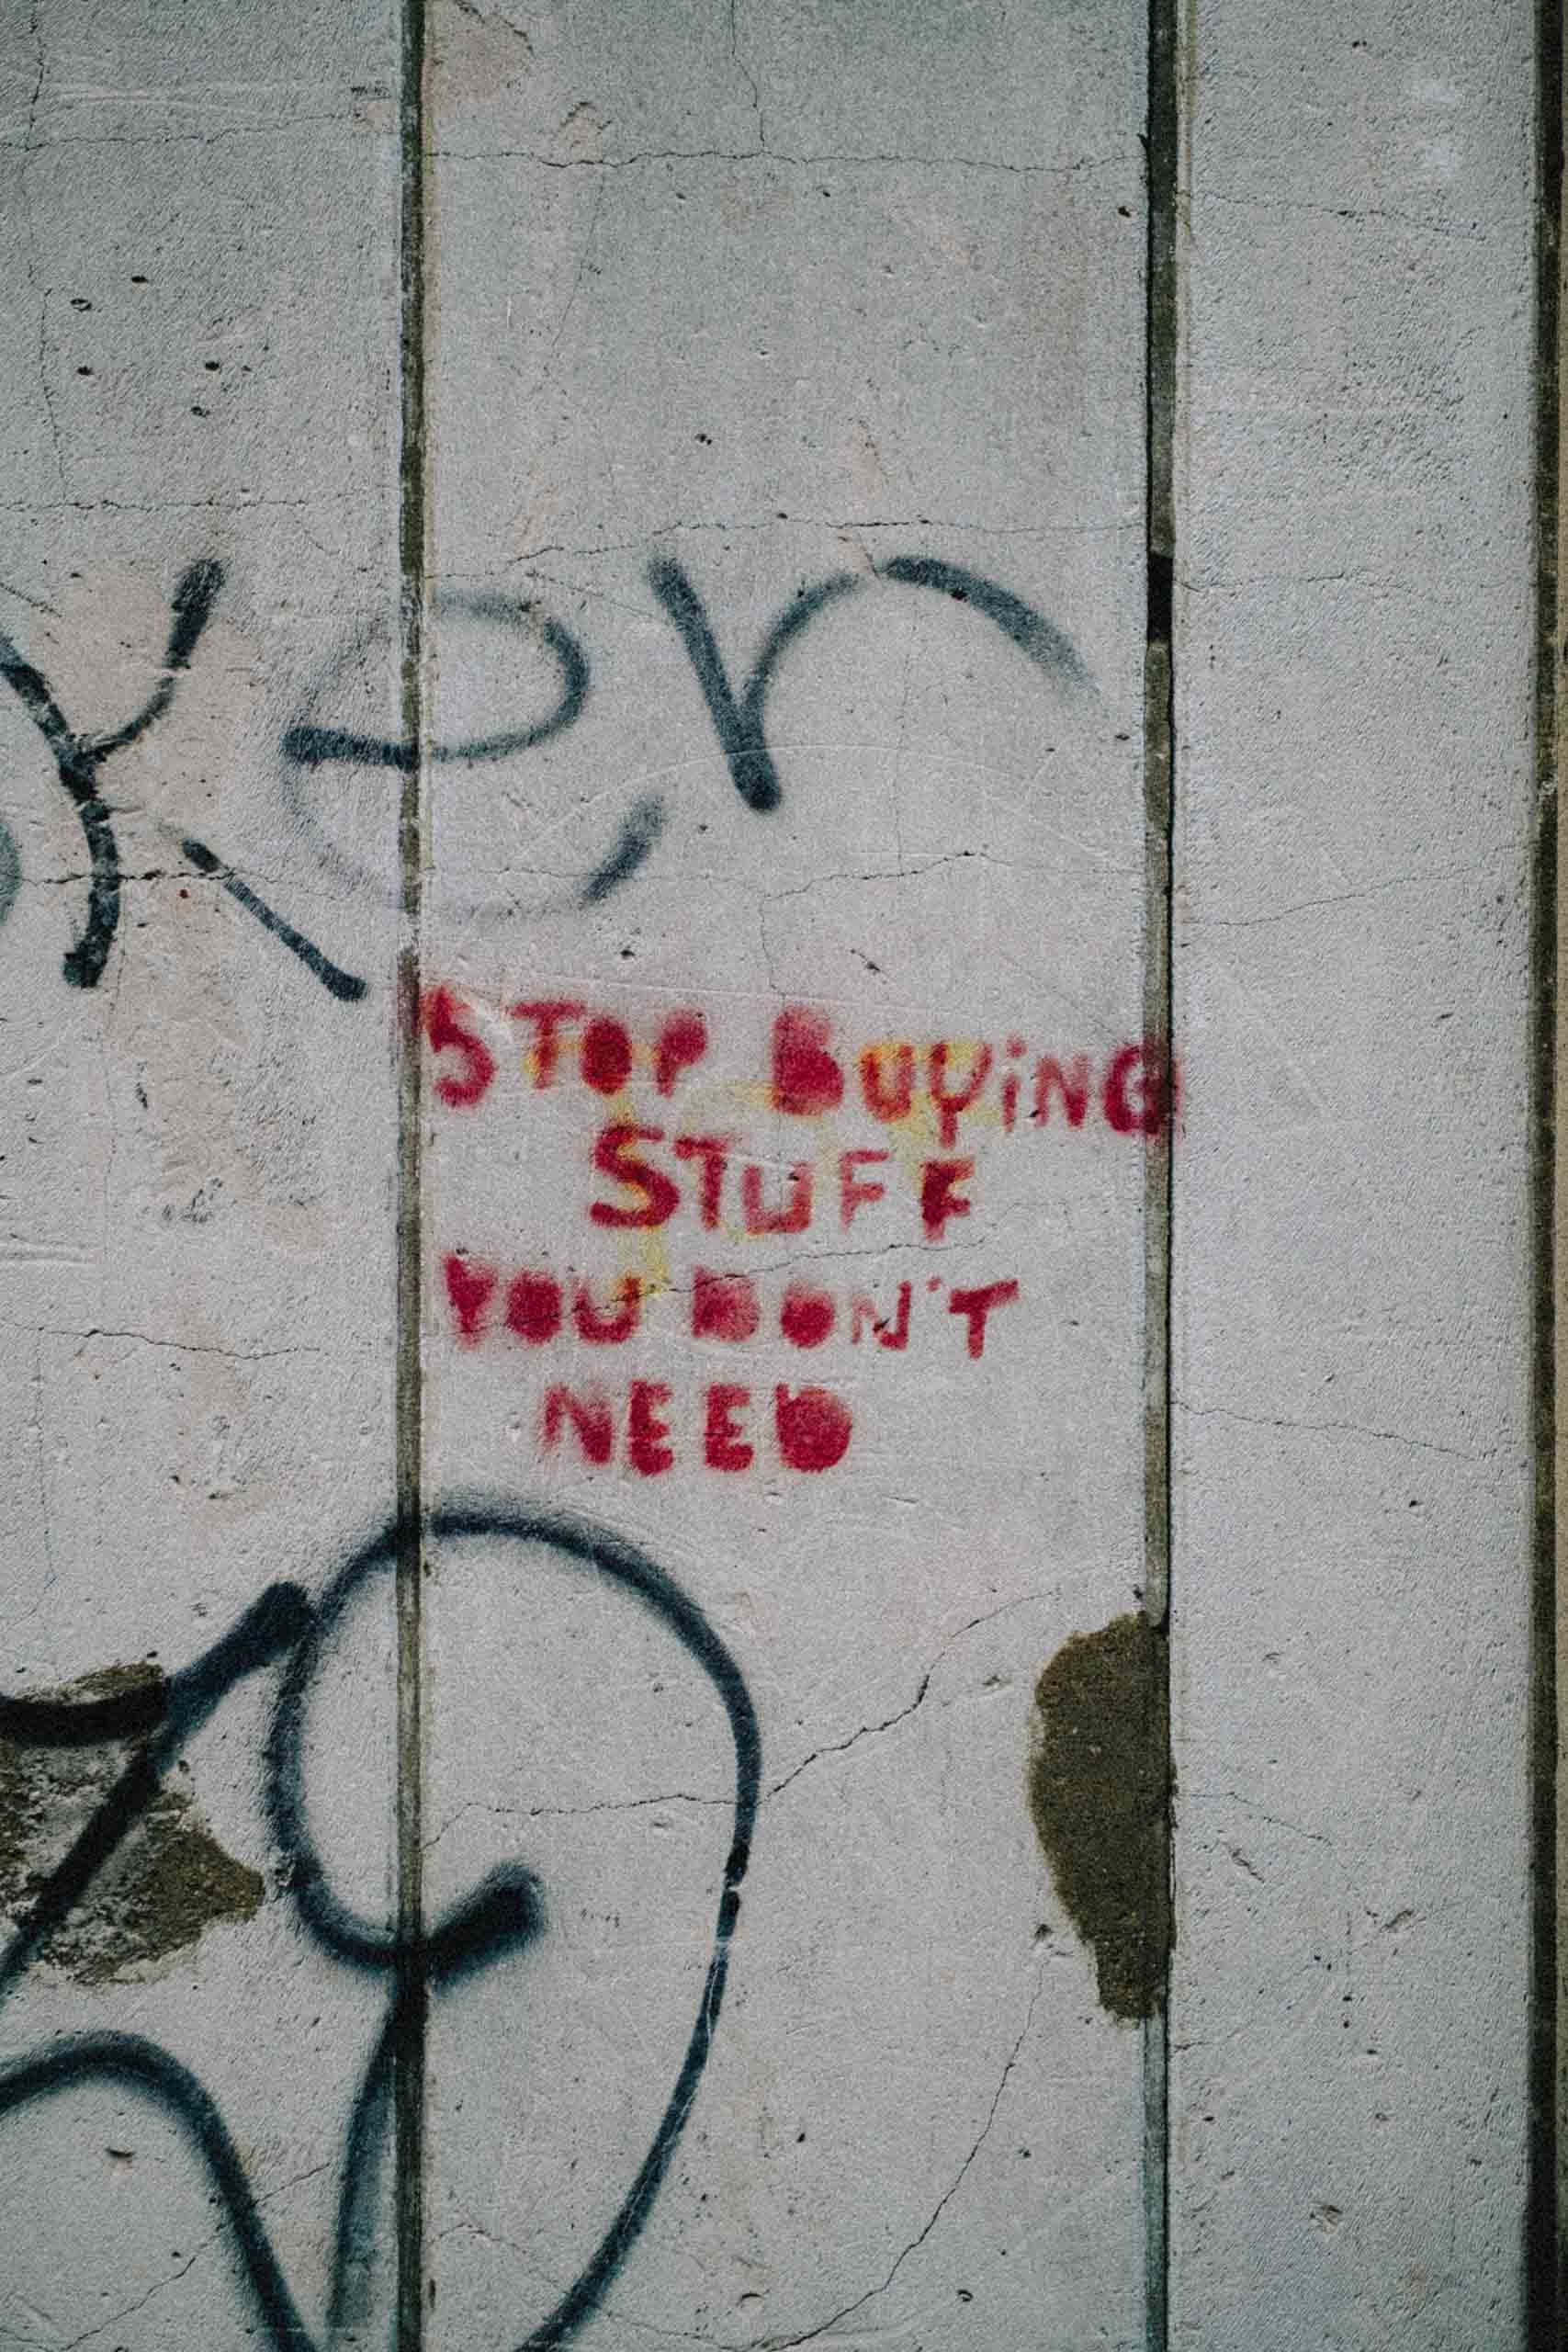 STOP BUYiNG
STUFF
YOU DON'T
NEED